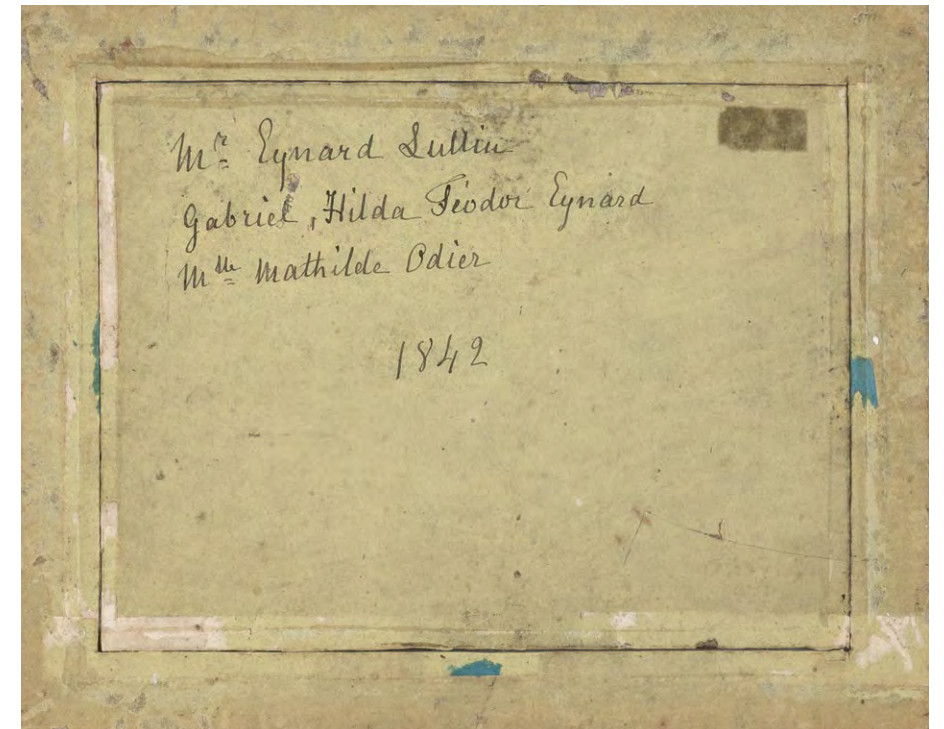 Mr Eynard Lullin
Gabriel, Hilda Féodor Eynard
Mlle Mathilde Odier
1842